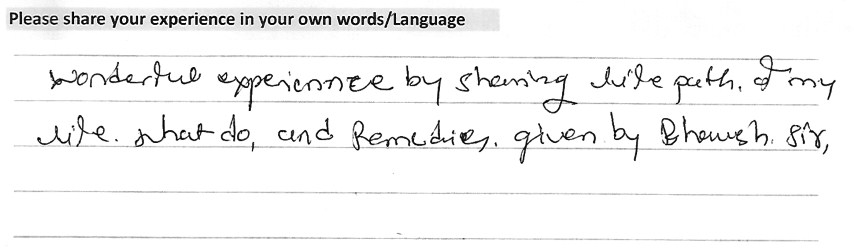 Please share your experience in your own words/Language
wonderful experiennce by sharing life path, of my
life. what do, and Remedies. given by Bhavesh. Sir,